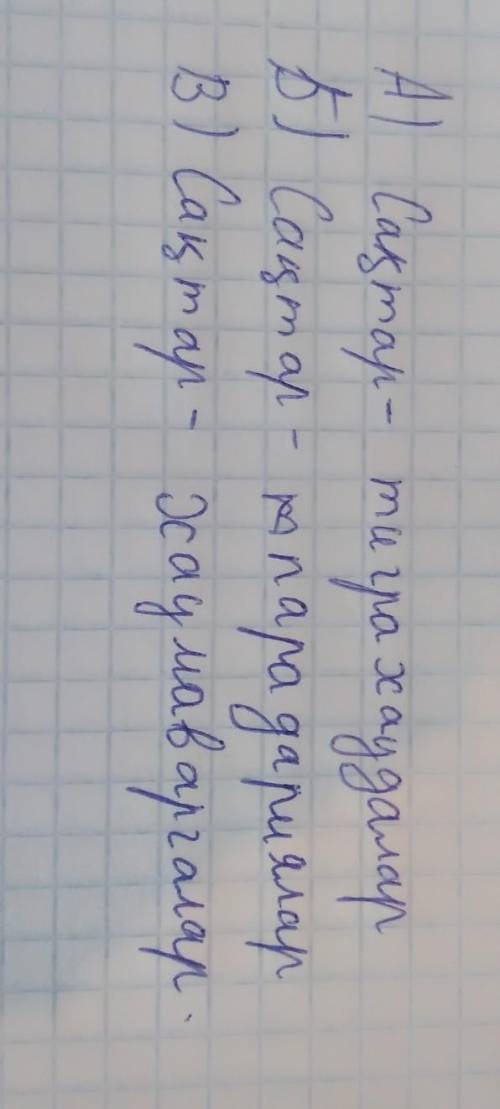 А) Сақтар- тиграхаудалар
Б) Сақтар- парадариялар
В) Сақтар- хаумаваргалар.